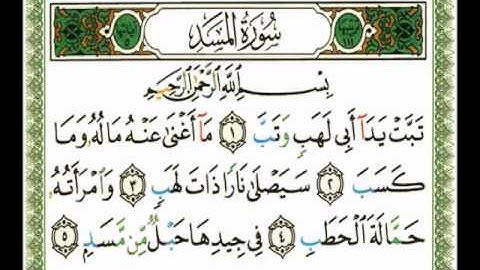 سُورَةُ المَسَد
بِسْمِ اللَّهِ الرَّحْمَٰنِ الرَّحِيمِ
تَبَّتْ يَدَآ أَبِى لَهَبٍ وَتَبَّ ١ مَآ أَغْنَىٰ عَنْهُ مَالُهُۥ وَمَا
كَسَبَ ٢ سَيَصْلَىٰ نَارًا ذَاتَ لَهَبٍ ٣ وَٱمْرَأَتُهُۥ
حَمَّالَةَ ٱلْحَطَبِ ٤ فِى جِيدِهَا حَبْلٌ مِّن مَّسَدٍۭ ٥